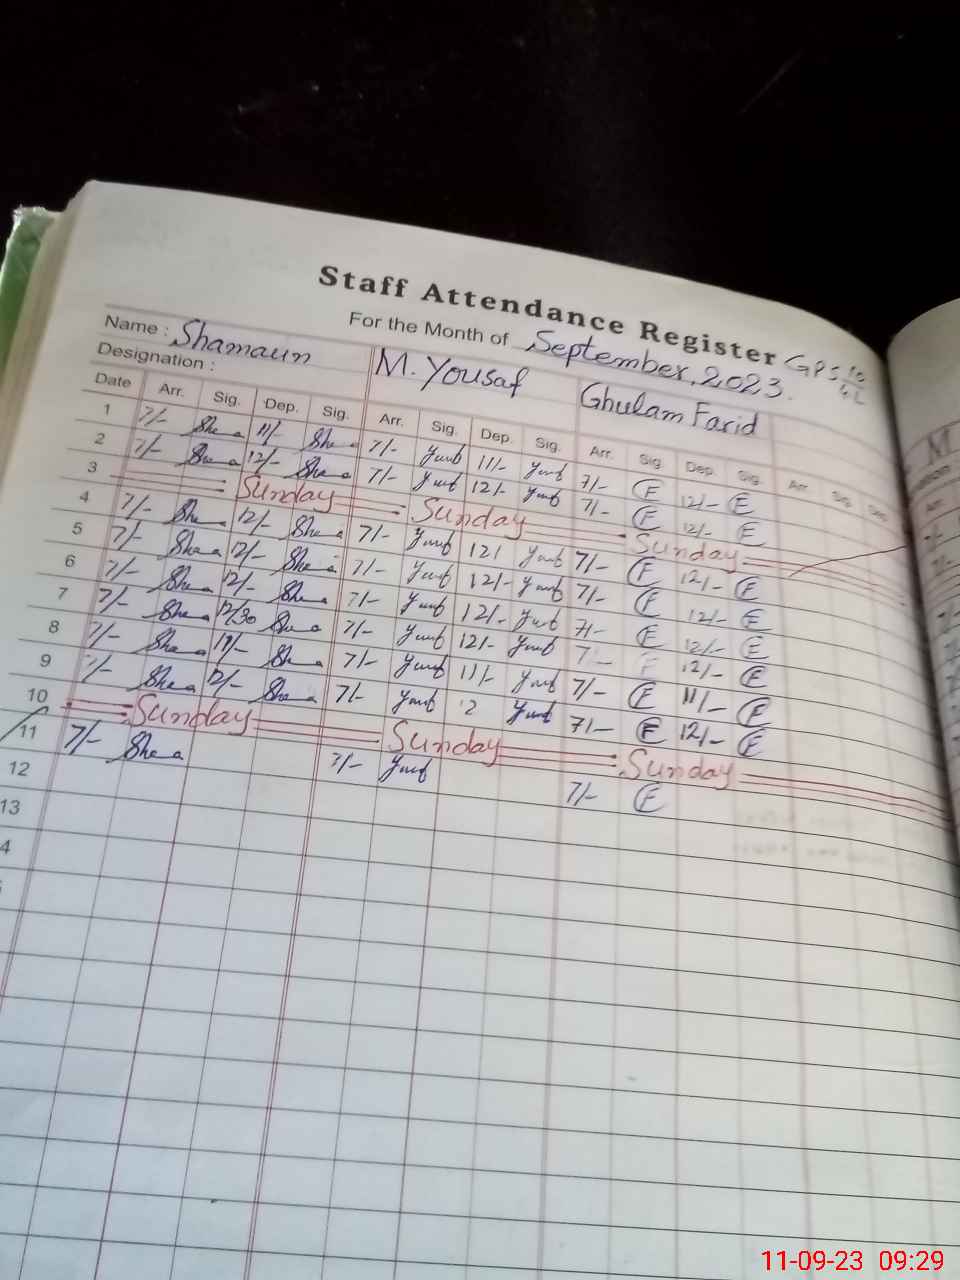 Staff Attendance Register
For the Month of September, 2023. GPS
Name : Shamaun M. Yousaf Ghulam Farid
Designation :
Date Arr. Sig. Dep. Sig. Arr. Sig. Dep. Sig. Arr. Sig. Dep. Sig. Arr. Sig. Dep
1 7/- Sha 11/- Sha 7/- 11/- 7/- E 12/- E
2 7/- Sha 12/- Sha 7/- 12/- 7/- E 12/- E
3 Sunday Sunday Sunday
4 7/- Sha 12/- Sha 7/- 12/ 7/- E 12/- E
5 7/- Sha 12/- Sha 7/- 12/- 7/- E 12/- E
6 7/- Sha 12/- Sha 7/- 12/- 7/- E 12/- E
7 7/- Sha 12/30 Sha 7/- 12/- 7/- F 12/- E
8 7/- Sha 11/- Sha 7/- 11/- 7/- E 11/- E
9 7/- Sha 12/- Sha 7/- 12 7/- E 12/- E
10 Sunday Sunday Sunday
11 7/- Sha 7/- 7/- E
12
13
4
11-09-23 09:29